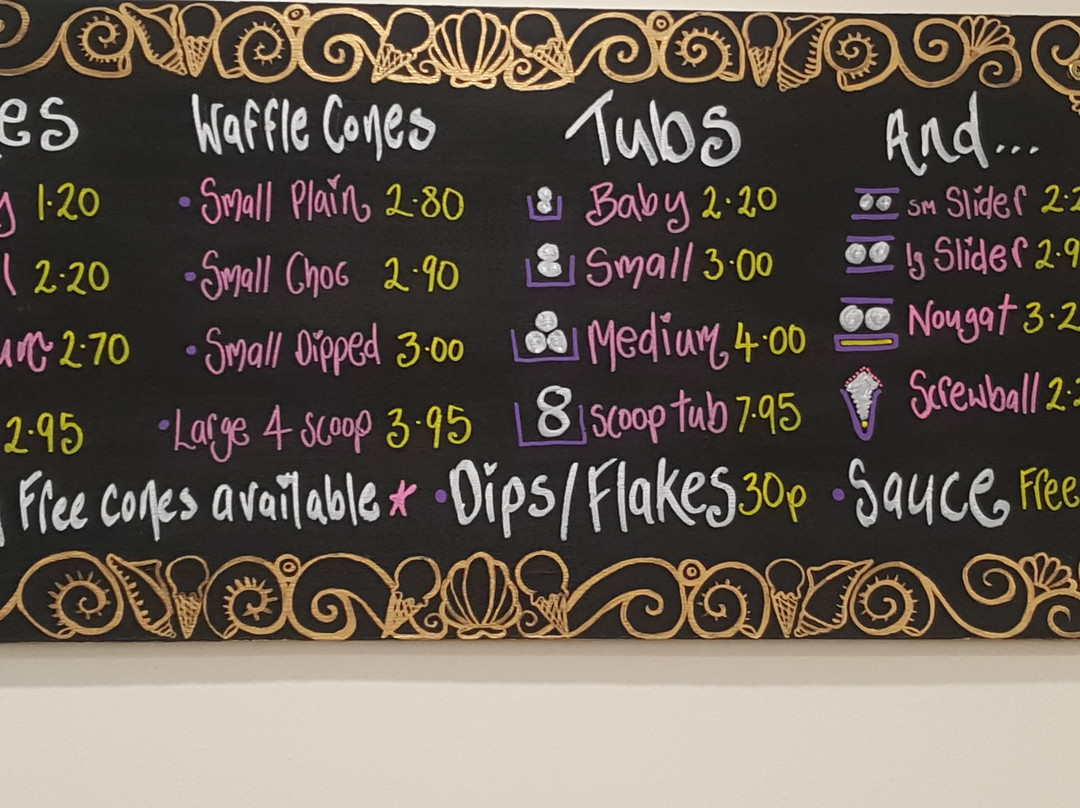 es Waffle Cones Tubs And...
y 1.20 • Small Plain 2.80 Baby 2.20 SM Slider 2.2
l 2.20 • Small Choc 2.90 Small 3.00 lg Slider 2.9
um 2.70 • Small Dipped 3.00 Medium 4.00 Nougat 3.2
2.95 • Large 4 scoop 3.95 8 scoop tub 7.95 Screwball 2.2
Free cones available* • Dips/Flakes 30p • Sauce Free